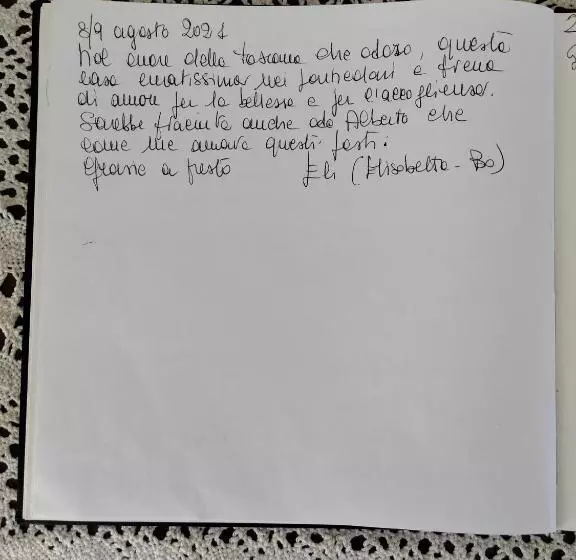 8/9 agosto 2021
Nel cuore della toscana che adoro, questa
casa curatissima nei particolari è piena
di amore per la bellezza e per l'accoglienza.
Sarebbe piaciuta anche ad Alberto che
come me amava questi posti.
Grazie a presto Eli (Elisabetta - Bo)